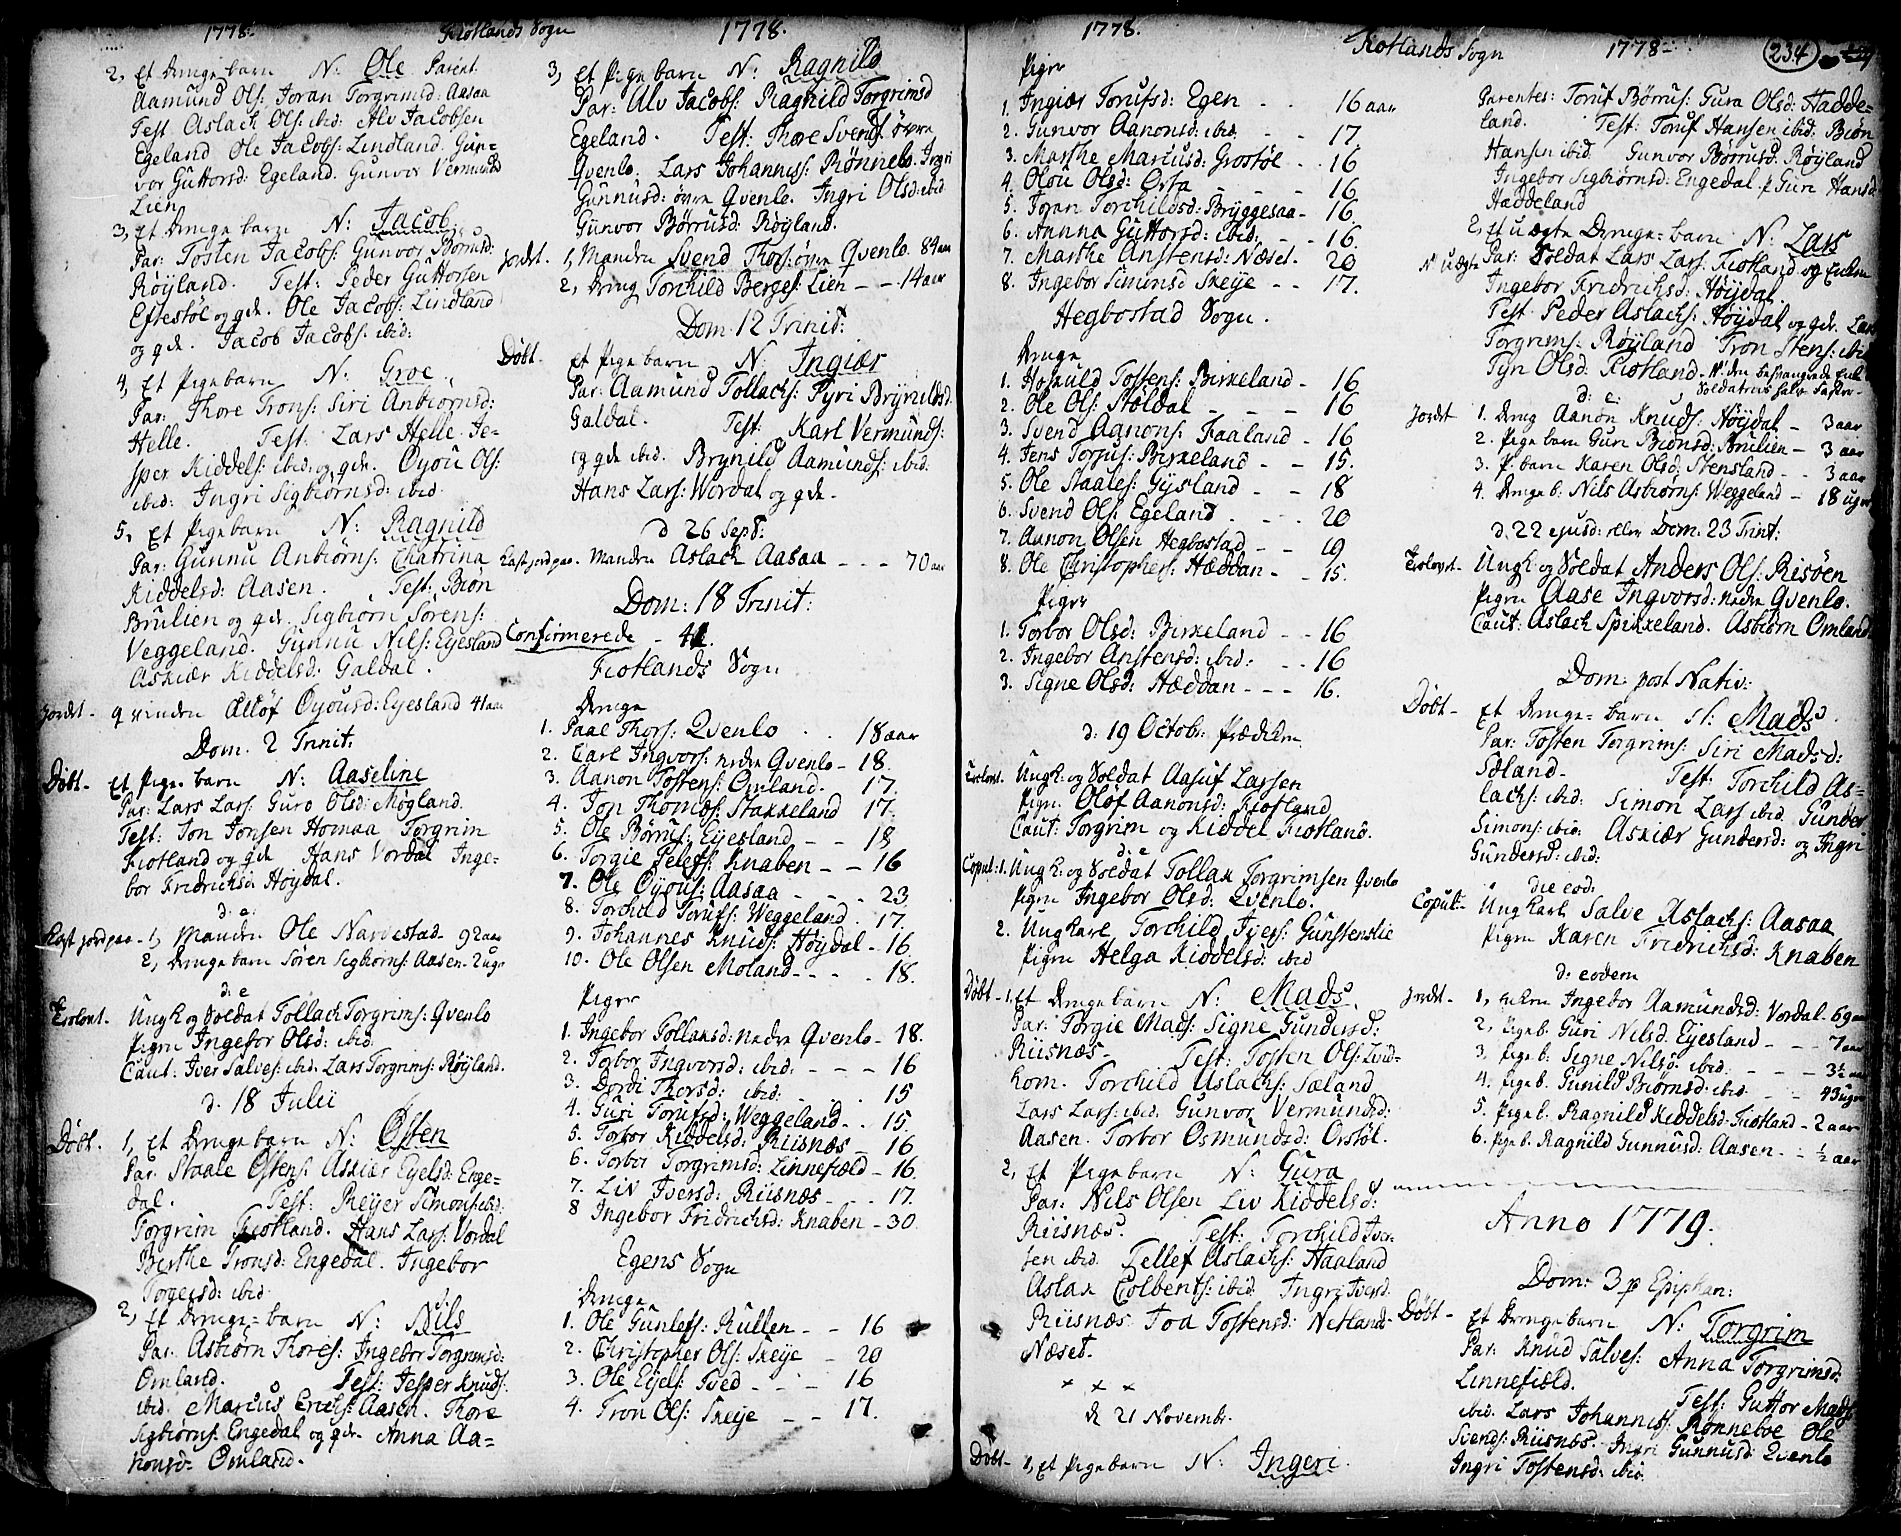 1778. Fiotlands Sogn 1778.
2, Et Drengebarn N: Ole Parent.
Aamund Ols: Joran Torgrimsd: Aasaa
Test. Aslach Ols: ibid: Alv Jacobsen
Egeland Ole Jacobs: Lindland. Gun=
vor Guttorsd: Egeland. Gunvor Vermunds
Lien
3, Et Drengebarn N: Jacob
Par: Tosten Jacobs: Gunvor Børrusd:
Røyland. Test: Peder Guttorsen
Eftestøl og qde. Ole Jacobs: Lindland
og qde. Jacob Jacobs: ibid:
4, Et Pigebarn N: Groe
Par: Thore Trons: Siri Anbiørnsd:
Helle. Test: Lars Helle Je=
sper Kiddels: ibid: og qde. Oyou Ols:
ibid: Ingri Sigbiørnsd: ibid.
5, Et Pigebarn N: Ragnild
Par: Gunnu Anbiørns: Chatrina
Kiddelsd: Aasen. Test: Biøn
Brulien og qde. Sigbiørn Sørens:
Veggeland. Gunnu Nils: Eyesland
Askiær Kiddelsd: Galdal.
Jordet - Qvinden Alløf Oyousd: Eyesland 41 aar
Dom. 2 Trinit:
Døbt - Et Pigebarn N: Aaseline
Par: Lars Lars: Guro Olsd: Møgland.
Test: Jon Jonsen Homaa Torgrim
Fiotland og qde Hans Vordal Inge=
bor Fridrichsd: Høydal.
d: e:
Kast jord paa - 1, Manden Ole Nardestad - 92 aar
2, Drengebarn Søren Sigbiørns: Aasen - 2 ugr
d: e
Trolovt. Ungk og Soldat Tollach Torgrims: Qvenlo
Pigen Ingebor Olsd: ibid:
Caut: Iver Salves: ibid. Lars Torgrims: Røyland.
d. 18 Julii
Døbt. 1, Et Drengebarn N: Osten
Par. Staale Ostens: Askier Eyelsd: Enge=
dal. Test: Reyer Simons: ibid:
Torgrim Fiotland. Hans Lars: Vordal
Berthe Tronsd: Engedal. Ingebor
Torgersd: ibid.
2, Et Drenge=barn N: Nils
Par: Asbiørn Thores: Ingebor Torgrimsd:
Omland. Test: Jesper Knuds:
ibid. Marcus Erichs: Aasen. Thore
Sigbiørns: Engedal og qde Anna Aa=
nonsd: Omland.
3, Et Pigebarn N: Ragnild
Par: Alv Jacobs: Ragnild Torgrimsd
Egeland. Test: Thore Svends: øvre
Qvenlo. Lars Johannis: Rønneboe. Ingri
Gunnusd: øvre Qvenlo. Ingri Olsd: ibid
Gunvor Børrusd: Røyland.
Jordet. 1, Manden Svend Thors: øvre Qvenlo 84 aar
2, Dreng Torchild Berges: Lien - - 14 aar
Dom: 12 Trinit:
Døbt - Et Pigebarn N: Ingiær
Par: Aamund Tollachs: Pyri Brynildsd
Galdal. Test: Karl Vermunds:
og qde ibid. Brynild Aamunds: ibid.
Hans Lars: Wordal og qde.
d 26 Sept:
Kast jord paa. Manden Aslach Aasaa - - - 70 aar
Dom: 18 Trinit:
Confirmerede - 41.
Fiotlands Sogn
Drenge
1. Paal Thors: Qvenlo . . 18 aar
2. Carl Ingvors: nedre Qvenlo - 18.
3. Aanon Tostens: Omland. 17.
4. Jon Thomæs: Stakkeland 17.
5. Ole Børrus: Eyesland - - 18
6. Torgie Pelefs: Knaben - - 16
7. Ole Oyous: Aasaa - - - 23.
8. Torchild Torufs: Weggeland . 17.
9. Johannes Knuds: Høydal - 16.
10. Ole Olsen Moland - - - . 18.
Piger
1. Ingebor Tollaksd: nedre Qvenlo - 18.
2. Torbor Ingvorsd: ibid: - - - 16
3. Dordi Thorsd: ibid - . . 15
4. Guri Torufsd: Weggeland - . 15.
5. Torbor Kiddelsd: Riisnæs - 16
6. Torbor Torgrimsd: Linnefield - 16.
7. Liv Iversd: Riisnæs - - - 17.
8 Ingebor Fridrichsd: Knaben - 30.
Egens Sogn
Drenge
1. Ole Gunlefs: Rullen - - 16
2. Christopher Ols: Skeije - 20
3. Ole Eyels: Tved - - - 16
4. Tron Ols: Skeije - - 17.
1778. Fiotlands Sogn 1778 - 234
Piger
1. Ingiær Torufsd: Egen - . . 16 aar
2. Gunvor Aanonsd: ibid. - - 17.
3. Marthe Marcusd: Grostøl - . 16
4. Olou Olsd: Orta - - - 16
5. Joran Torchildsd: Bryggesaa - 16.
6. Aanna Guttorsd: ibid: - - 16.
7. Marthe Anstensd: Næset. - 20
8. Ingebor Simonsd Skeije - - 17.
Hegbostad Sogn.
Drenge
1. Hoskuld Tostens: Birkeland - 16
2. Ole Ols: Støldal - - - 16
3. Svend Aanons: Faaland - 16
4. Jens Torjus: Birkeland - - 15.
5. Ole Staales: Gysland - - 18
6. Svend Ols: Egeland . - - 20
7. Aanon Olsen Hegbostad - - 19.
8. Ole Christophers: Hæddan - - 15.
Piger
1. Torbor Olsd: Birkeland - - 16
2. Ingebor Anstensd: ibid: - - 16
3. Signe Olsd: Hæddan - - - 16.
d. 19 Octobr: Prædiken
Trolovt. Ungk: og Soldat Aasuf Larsen
Pigen Oløf Aanonsd: Fiotland
Caut: Torgrim og Kiddel Fiotland.
d: e
Copul: 1. Ungk: og Soldat Tollak Torgrimsen Qvenlo
Pigen Ingebor Olsd: Qvenlo.
2. Ungkarl Torchild Ivers: Gunstenslie
Pigen Helga Kiddelsd: ibid
Døbt - 1, Et Drengebarn N: Mads
Par: Torgie Mads: Signe Gundersd:
Riisnæs - Test: Tosten Ols: Qvid=
hom. Torchild Aslachs: Sæland
Lars Lars: ibid. Gunvor Vermundsd:
Aasen. Torbor Osmundsd: Orstøl.
2, Et Pigebarn N: Gura
Par: Nils Olsen Liv Kiddelsd:
Riisnæs. Test: Torchild Iver=
sen ibid. Tellef Aslachs: Haaland
Aslak Colbents: ibid. Ingri Iversd.
Riisnæs. Toa Tostensd: Netland -
Næset.
x x x
d. 21 Novembr.
Døbt - 1, Et Pigebarn N: Ingeri.
Parentes: Toruf Børrus: Gura Olsd: Hadde=
land. Test: Toruf Hansen ibid: Biøn
Hansen ibid. Gunvor Børrusd: Røyland
Ingebor Sigbiørnsd: Engedal. p Guri Hansd
Haddeland
2, Et uægte Drenge=barn N: Lars
N. uægte Par: Soldat Lars Lars: Fiotland og Enken
Ingebor Fridrichsd: Høydal.
Test Peder Aslachs: Høydal og qde. Lars
Torgrims: Røyland Tron Stens: ibid
Tyn Olsd: Fiotland - N. den besvangrede Enke
d: e: Soldatens halv Søster -
Jordet 1. Dreng Aanon Knuds: Høydal - 3 aar
2. Pigebarn Guri Bionsd: Brulien - 3 aar
3. P. barn Karen Olsd: Stensland - - 3 aar
4. Drenge b: Nils Asbiørns: Weggeland - 18 uger
d. 22 ejusd: eller Dom: 23 Trinit:
Trolovet - Ungk: og Soldat Anders Ols: Risöen
Pigen Aase Ingvorsd: nedre Qvenlo.
Caut: Aslach Spikkeland. Asbiørn Omland
Dom: post Nativ:
Døbt - Et Drenge=barn N: Mads.
Par: Tosten Torgrims: Siri Madsd:
Sæland - Test: Torchild As=
lachs: ibid: Simon Lars ibid. Gunder
Simons: ibid: Askiær Gundersd: og Ingri
Gundersd: ibid:
die eod:
Copul - Ungkarl Salve Aslachs: Aasaa
Pigen Karen Fridrichsd: Knaben
d: eodem
Jordt - 1, enken Ingebor Aamundsd: Vordal - 69 aar
2, Pigeb: Guri Nilsd. Eyesland - - - 7 aar
3, Pige b: Signe Nilsd: ibid: - - - 3½ aar
4. Pige b. Gunild Biørnsd: ibid: - - 4 Suger
5. Pige b. Ragnild Kiddelsd: Fiotland - 2 aar
6. Pige b. Ragnild Gunnusd: Aasen - - ½ aar
Anno 1779.
Dom: 3 p Epiphan:
Døbt - Et Drengebarn N: Torgrim
Par: Knud Salves: Anna Torgrimsd:
Linnefield. Test: Guttor Mads:
ibid. Lars Johannis: Rønneboe Ole
Svends: Riisnæs. Ingri Gunnusd: Qvenlo
Ingri Tostensd: ibid.